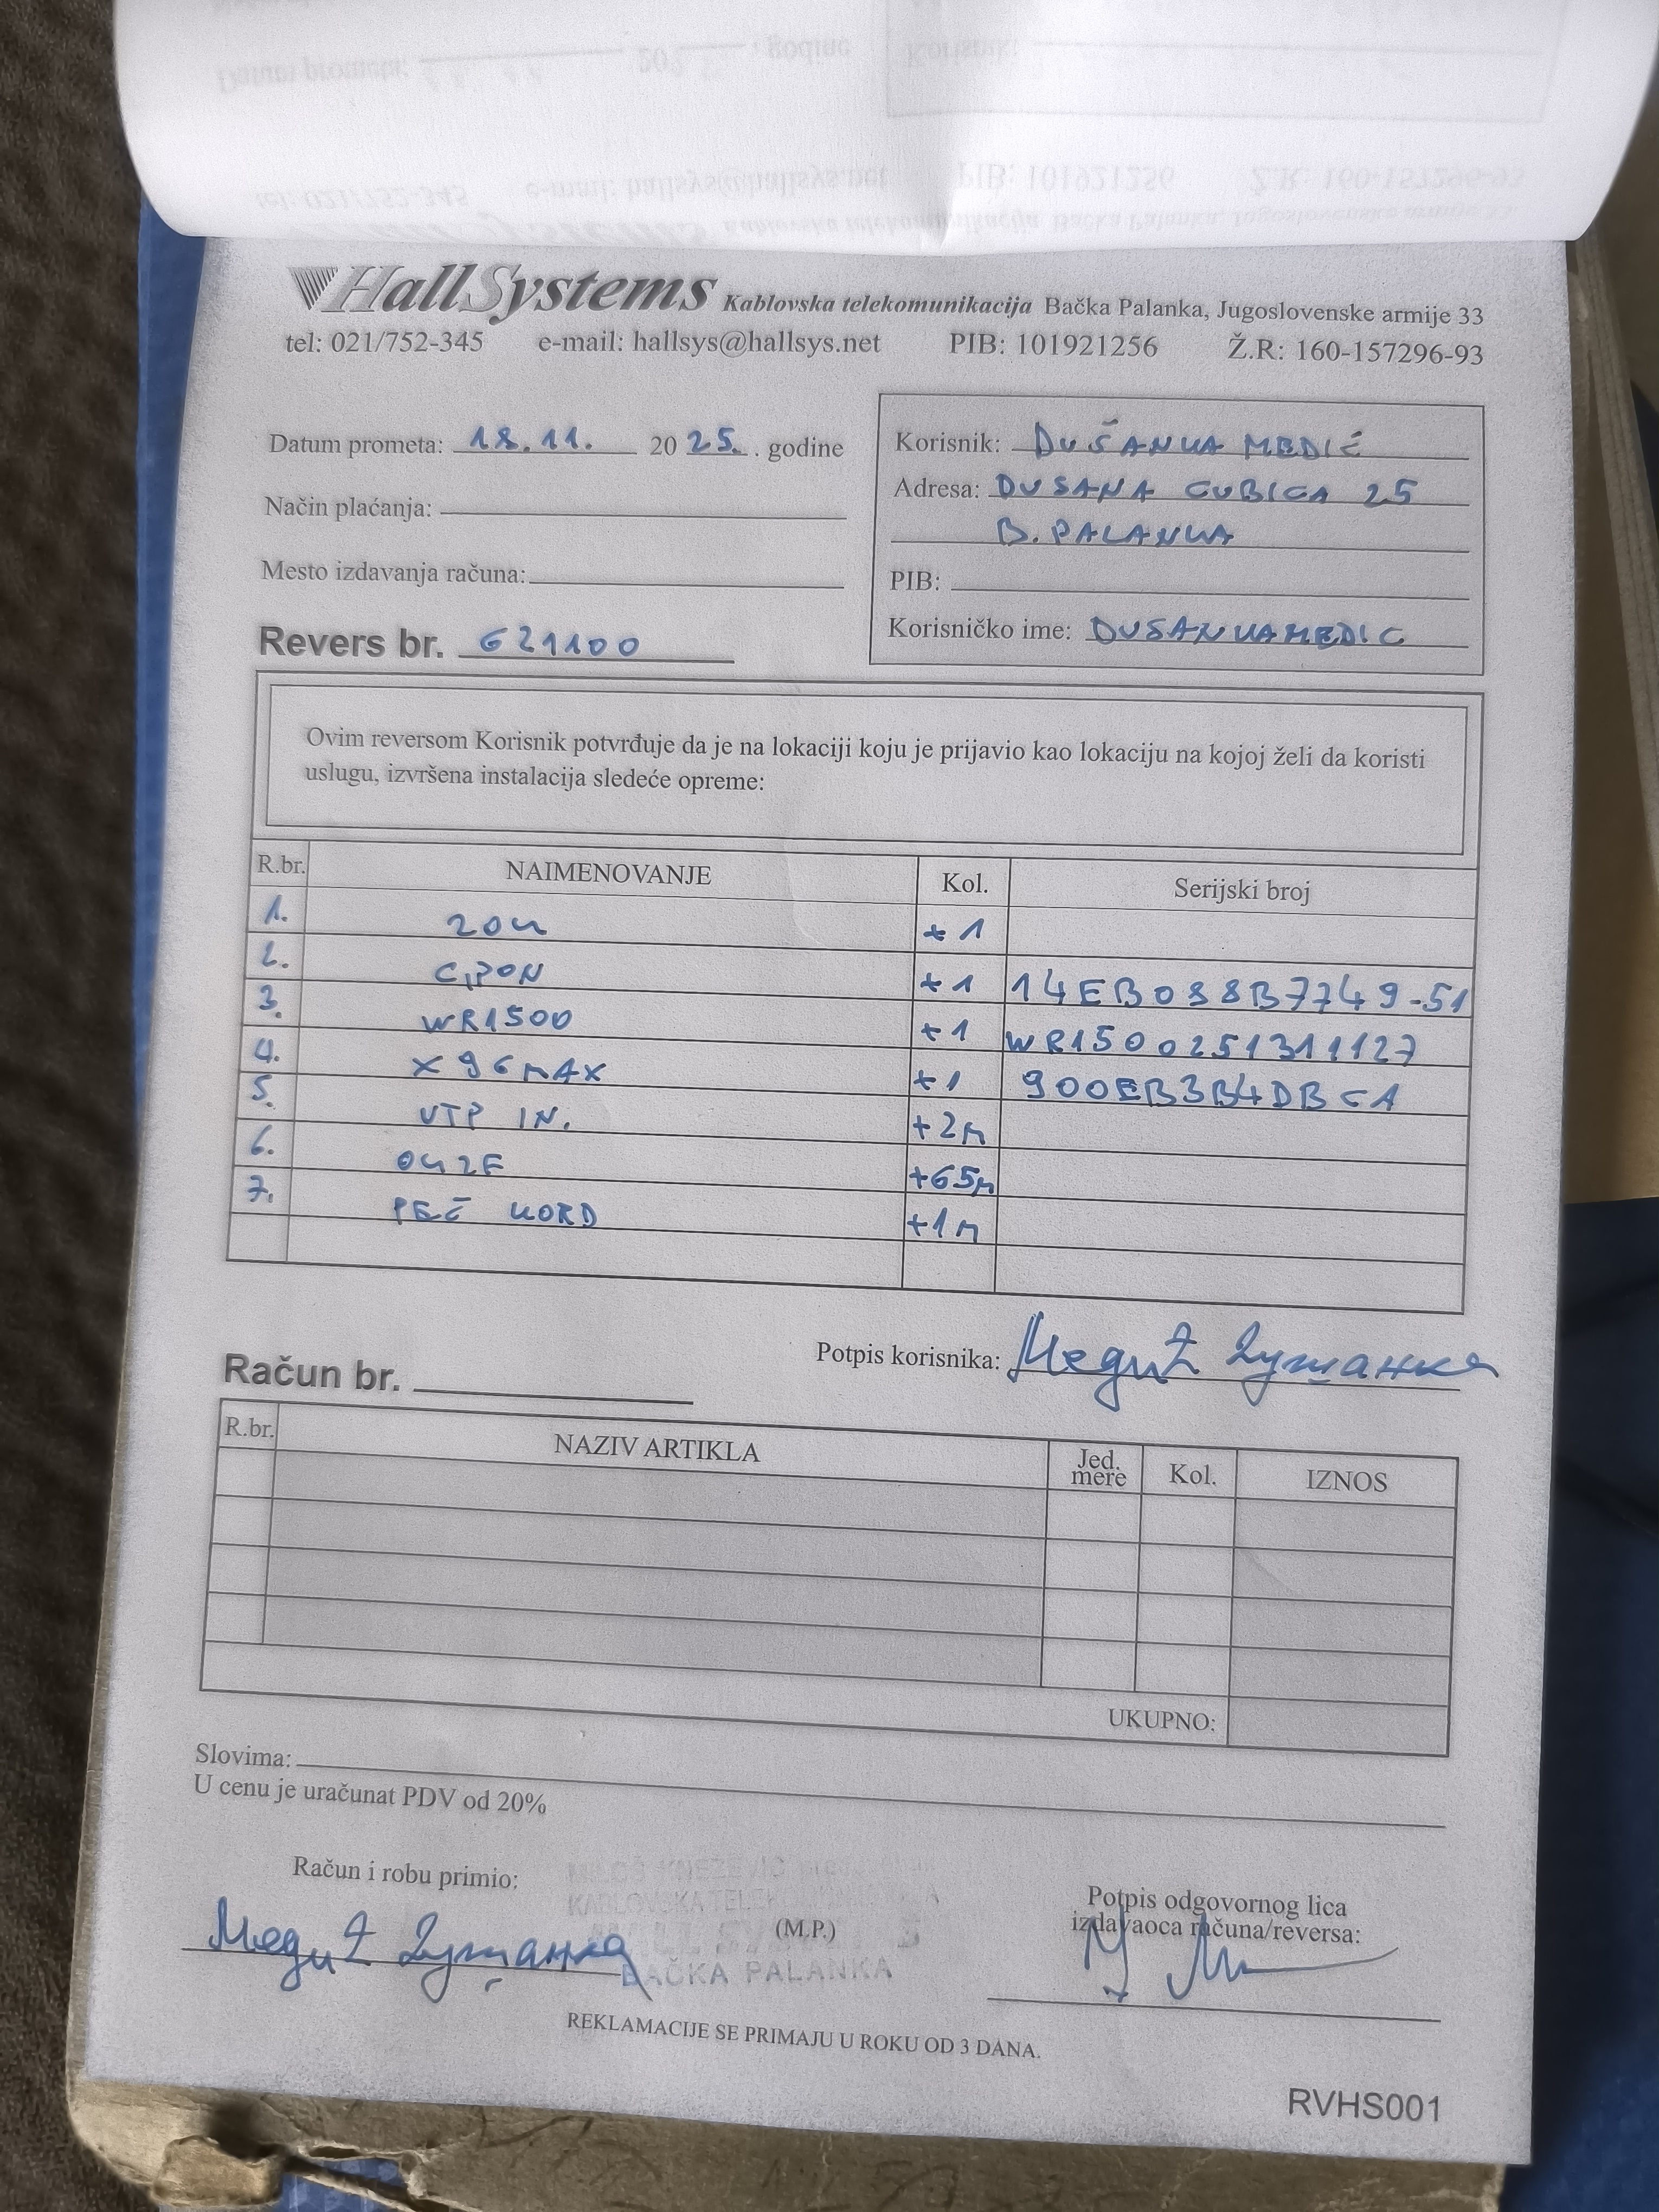 HallSystems Kablovska telekomunikacija Bačka Palanka, Jugoslovenske armije 33
tel: 021/752-345 e-mail: hallsys@hallsys.net PIB: 101921256 Ž.R: 160-157296-93
Datum prometa: 18.11. 2025. . godine
Način plaćanja:
Mesto izdavanja računa:
Revers br. 621100
Korisnik: DUŠANKA MEDIĆ
Adresa: DUSANA CUBICA 25
B. PALANKA
PIB:
Korisničko ime: DUSANKAMEDIC
Ovim reversom Korisnik potvrđuje da je na lokaciji koju je prijavio kao lokaciju na kojoj želi da koristi
uslugu, izvršena instalacija sledeće opreme:
R.br. NAIMENOVANJE Kol. Serijski broj
1. ZOK +1
2. GPON +1 14EB088B7749-51
3. WR1500 +1 WR1500251311127
4. X96MAX +1 900EB3B4DBCA
5. UTP IN. +2m
6. OK2F +65m
7. PEČ KORD +1m
Potpis korisnika: Медић Душанка
Račun br.
R.br. NAZIV ARTIKLA Jed. mere Kol. IZNOS
UKUPNO:
Slovima:
U cenu je uračunat PDV od 20%
Račun i robu primio:
Медић Душанка
MILOŠ KNEŽEVIĆ
KABLOVSKA TELEKOMUNIKACIJA
HALL SYSTEMS
BAČKA PALANKA
(M.P.)
Potpis odgovornog lica
izdavaoca računa/reversa:
REKLAMACIJE SE PRIMAJU U ROKU OD 3 DANA.
RVHS001